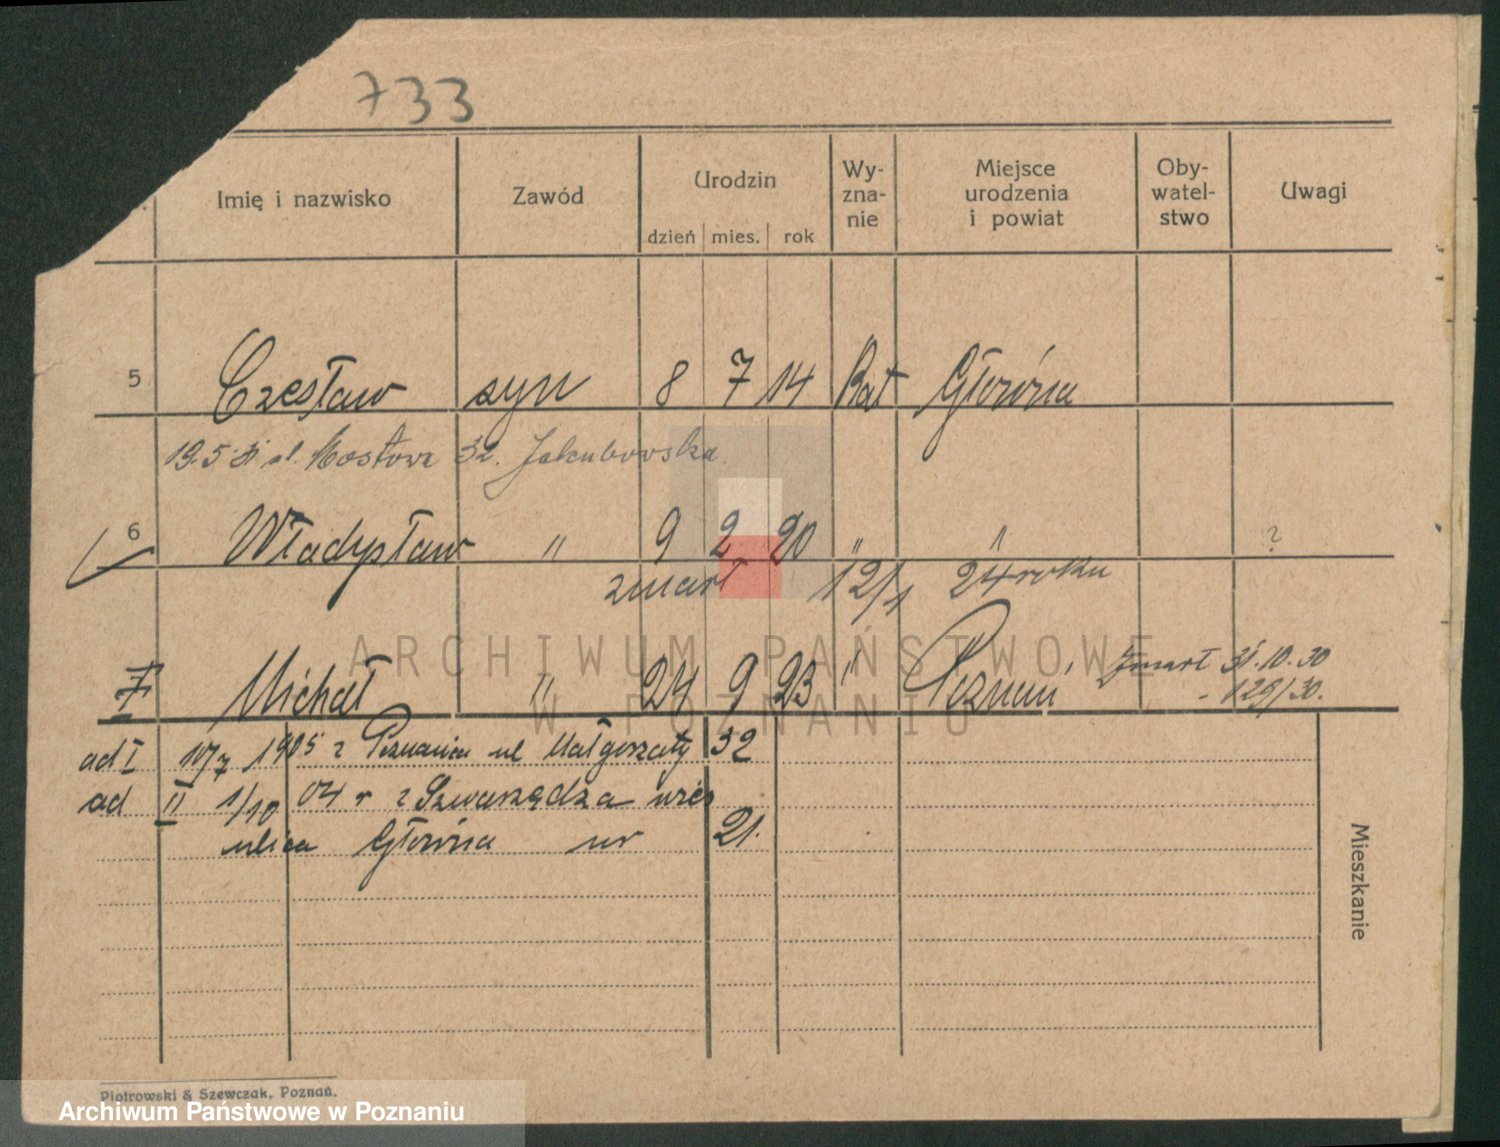 733
Imię i nazwisko Zawód Urodzin dzień mies. rok Wy-zna-nie Miejsce urodzenia i powiat Oby-watel-stwo Uwagi
5 Czesław syn 8 7 14 Kat Główna
19.5.31 ul. Mostowa 32. Jakubowska.
6 Władysław " 9 2 20 " " ?
zmarł 12/1 24 roku
7 Michał " 24 9 23 " Poznań Zmarł 31.10.30
- 129/30.
ad I 10/7 1905 z Poznania ul Małgorzaty 32
ad II 1/10 04 r z Szwarzędza
ulica Główna nr 21.
Mieszkanie
Piotrowski & Szewczak, Poznań.
ARCHIWUM PAŃSTWOWE
W POZNANIU
Archiwum Państwowe w Poznaniu